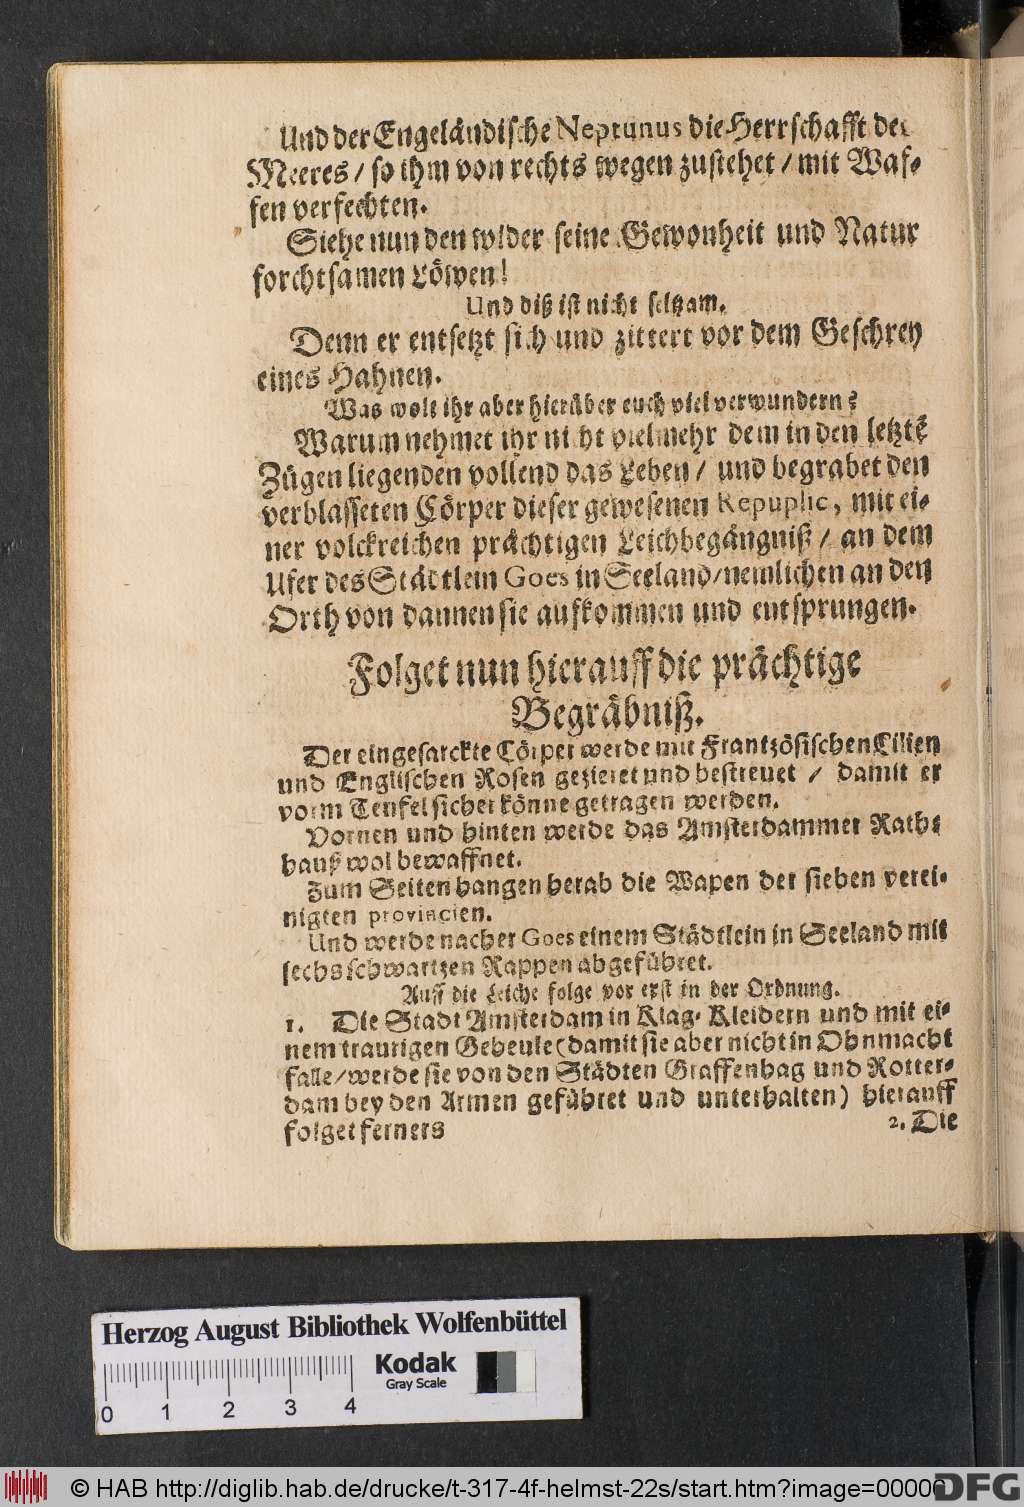 Und der Engeländische Neptunus die Herrschafft des
Meeres / so ihm von rechts wegen zustehet / mit Waf-
fen verfechten.
Siehe nun den wider seine Gewonheit und Natur
forchtsamen Löwen!
Und diß ist nicht seltzam.
Denn er entsetzt sich und zittert vor dem Geschrey
eines Hahnen.
Was wolt ihr aber hierüber euch viel verwundern?
Warum nehmet ihr nicht vielmehr dem in den letztẽ
Zügen liegenden vollend das Leben / und begrabet den
verblasseten Cörper dieser gewesenen Repuplic, mit ei-
ner volckreichen prächtigen Leichbegängniß / an dem
Ufer des Städtlein Goes in Seeland / nemlichen an den
Orth von dannen sie aufkommen und entsprungen.
Folget nun hierauff die prächtige
Begräbniß.
Der eingesarckte Cörper werde mit Frantzösischen Lilien
und Englischen Rosen gezieret und bestreuet / damit er
vorm Teufel sicher könne getragen werden.
Vornen und hinten werde das Amsterdammer Rath-
hauß wol bewaffnet.
Zum Seiten hangen herab die Wapen der sieben verei-
nigten provincien.
Und werde nacher Goes einem Städtlein in Seeland mit
sechs schwartzen Rappen abgeführet.
Auff die Leiche folge vor erst in der Ordnung.
1. Die Stadt Amsterdam in Klag-Kleidern und mit ei-
nem traurigen Geheule (damit sie aber nicht in Ohnmacht
falle / werde sie von den Städten Graffenhag und Rotter-
dam bey den Armen geführet und unterhalten) hierauff
folget ferners
2. Die
Herzog August Bibliothek Wolfenbüttel
Kodak
Gray Scale
0 1 2 3 4
© HAB http://diglib.hab.de/drucke/t-317-4f-helmst-22s/start.htm?image=00000
DFG